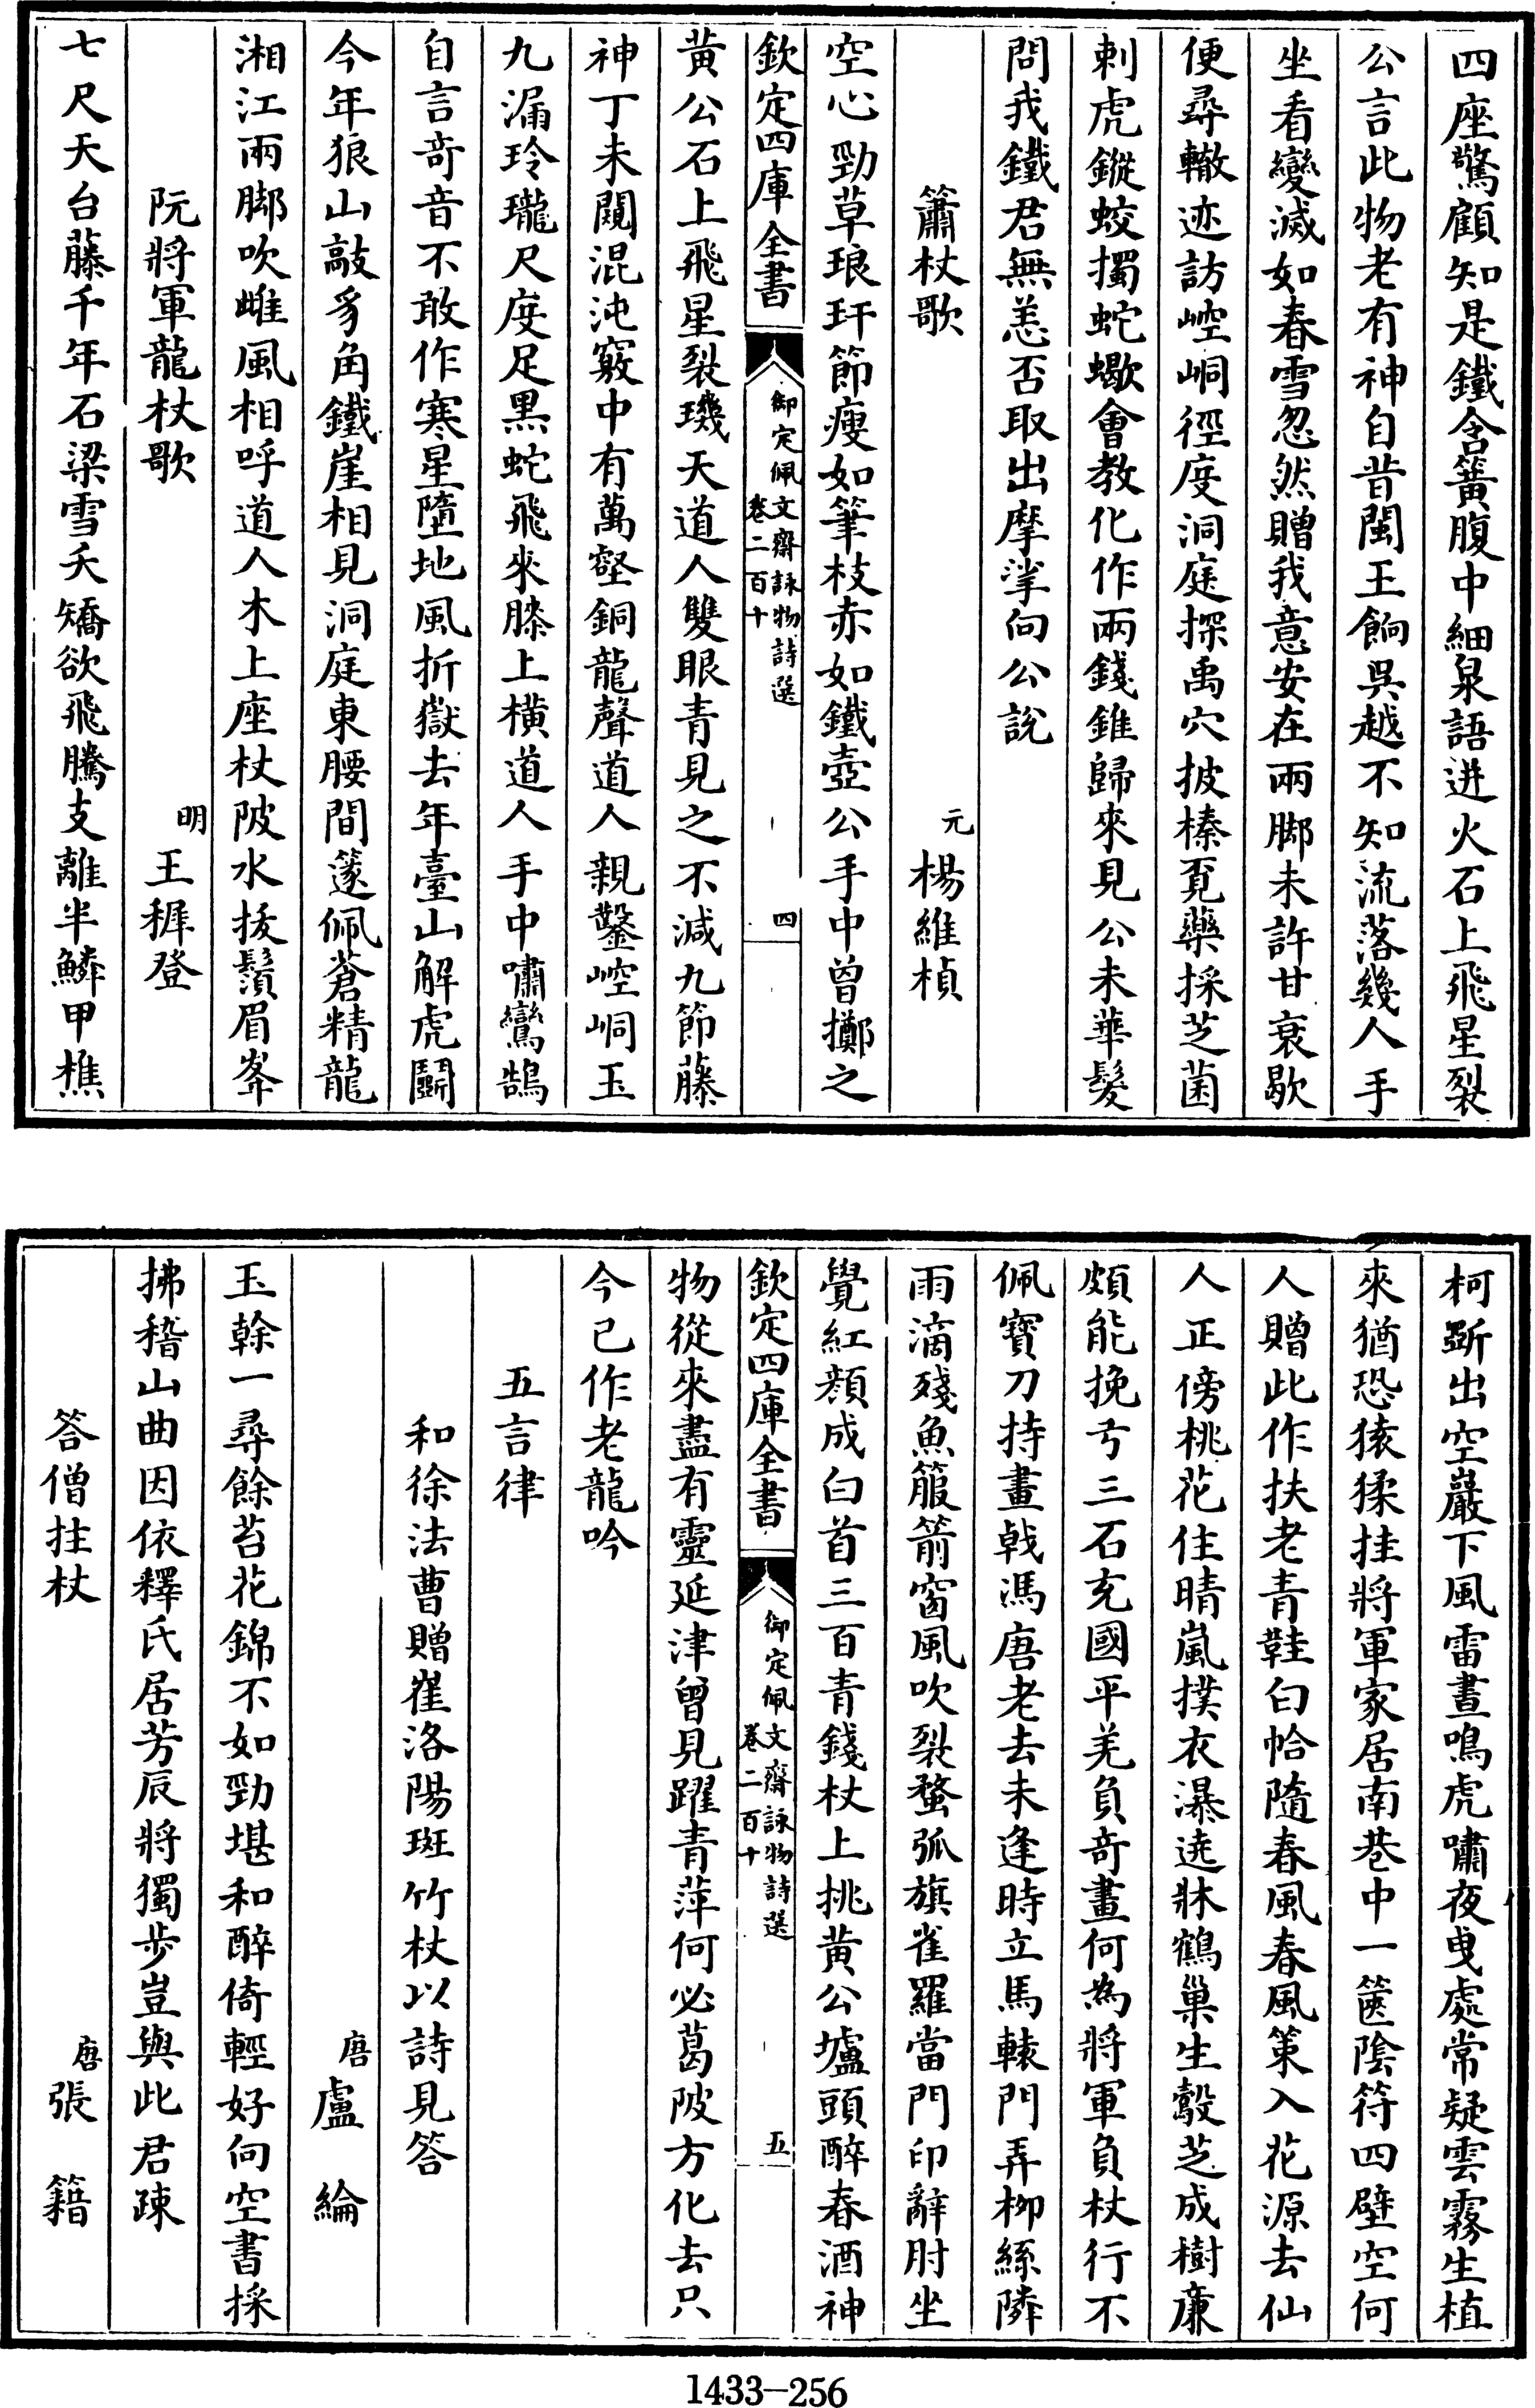 四座驚顧知是鐵含簧腹中細泉語迸火石上飛星裂
公言此物老有神自昔閩王餉吳越不知流落幾人手
坐看變滅如春雪忽然贈我意安在兩脚未許甘衰歇
便尋轍迹訪崆峒徑度洞庭探禹穴披榛覓藥採芝菌
刺虎鏦蛟擉蛇蠍會教化作兩錢錐歸來見公未華髮
問我鐵君無恙否取出摩挲向公說
簫杖歌
元
楊維楨
空心勁草琅玕節瘦如筆枝赤如鐵壺公手中曾擲之
欽定四庫全書
御定佩文齋詠物詩選
卷二百十
四
黄公石上飛星裂璣天道人雙眼青見之不減九節藤
神丁未闢混沌竅中有萬壑銅龍聲道人親鑿崆峒玉
九漏玲瓏尺度足黒蛇飛來膝上横道人手中嘯鸞鵠
自言竒音不敢作寒星墮地風折嶽去年臺山解虎鬭
今年狼山敲豸角鐵崖相見洞庭東腰間篴佩蒼精龍
湘江兩脚吹雌風相呼道人木上座杖陂水拔鬚眉峯
阮將軍龍杖歌
明
王穉登
七尺天台藤千年石梁雪夭矯欲飛騰支離半鱗甲樵
柯斲出空巖下風雷晝鳴虎嘯夜曵處常疑雲霧生植
來猶恐猿猱挂將軍家居南巷中一篋陰符四壁空何
人贈此作扶老青鞋白帢隨春風春風策入花源去仙
人正傍桃花住晴嵐撲衣瀑遶牀鶴巢生鷇芝成樹廉
頗能挽弓三石充國平羌負竒畫何為將軍負杖行不
佩寶刀持畫戟馮唐老去未逢時立馬轅門弄柳絲隣
雨滴殘魚服箭窗風吹裂蝥弧旗雀羅當門印辭肘坐
覺紅顔成白首三百青錢杖上挑黄公壚頭醉春酒神
欽定四庫全書
御定佩文齋詠物詩選
卷二百十
五
物從來盡有靈延津曾見躍青萍何必葛陂方化去只
今已作老龍吟
五言律
和徐法曹贈崔洛陽斑竹杖以詩見答
唐
盧綸
玉榦一尋餘苔花錦不如勁堪和醉倚輕好向空書採
拂稽山曲因依釋氏居芳辰將獨步豈與此君疎
答僧拄杖
唐
張籍
1433-256